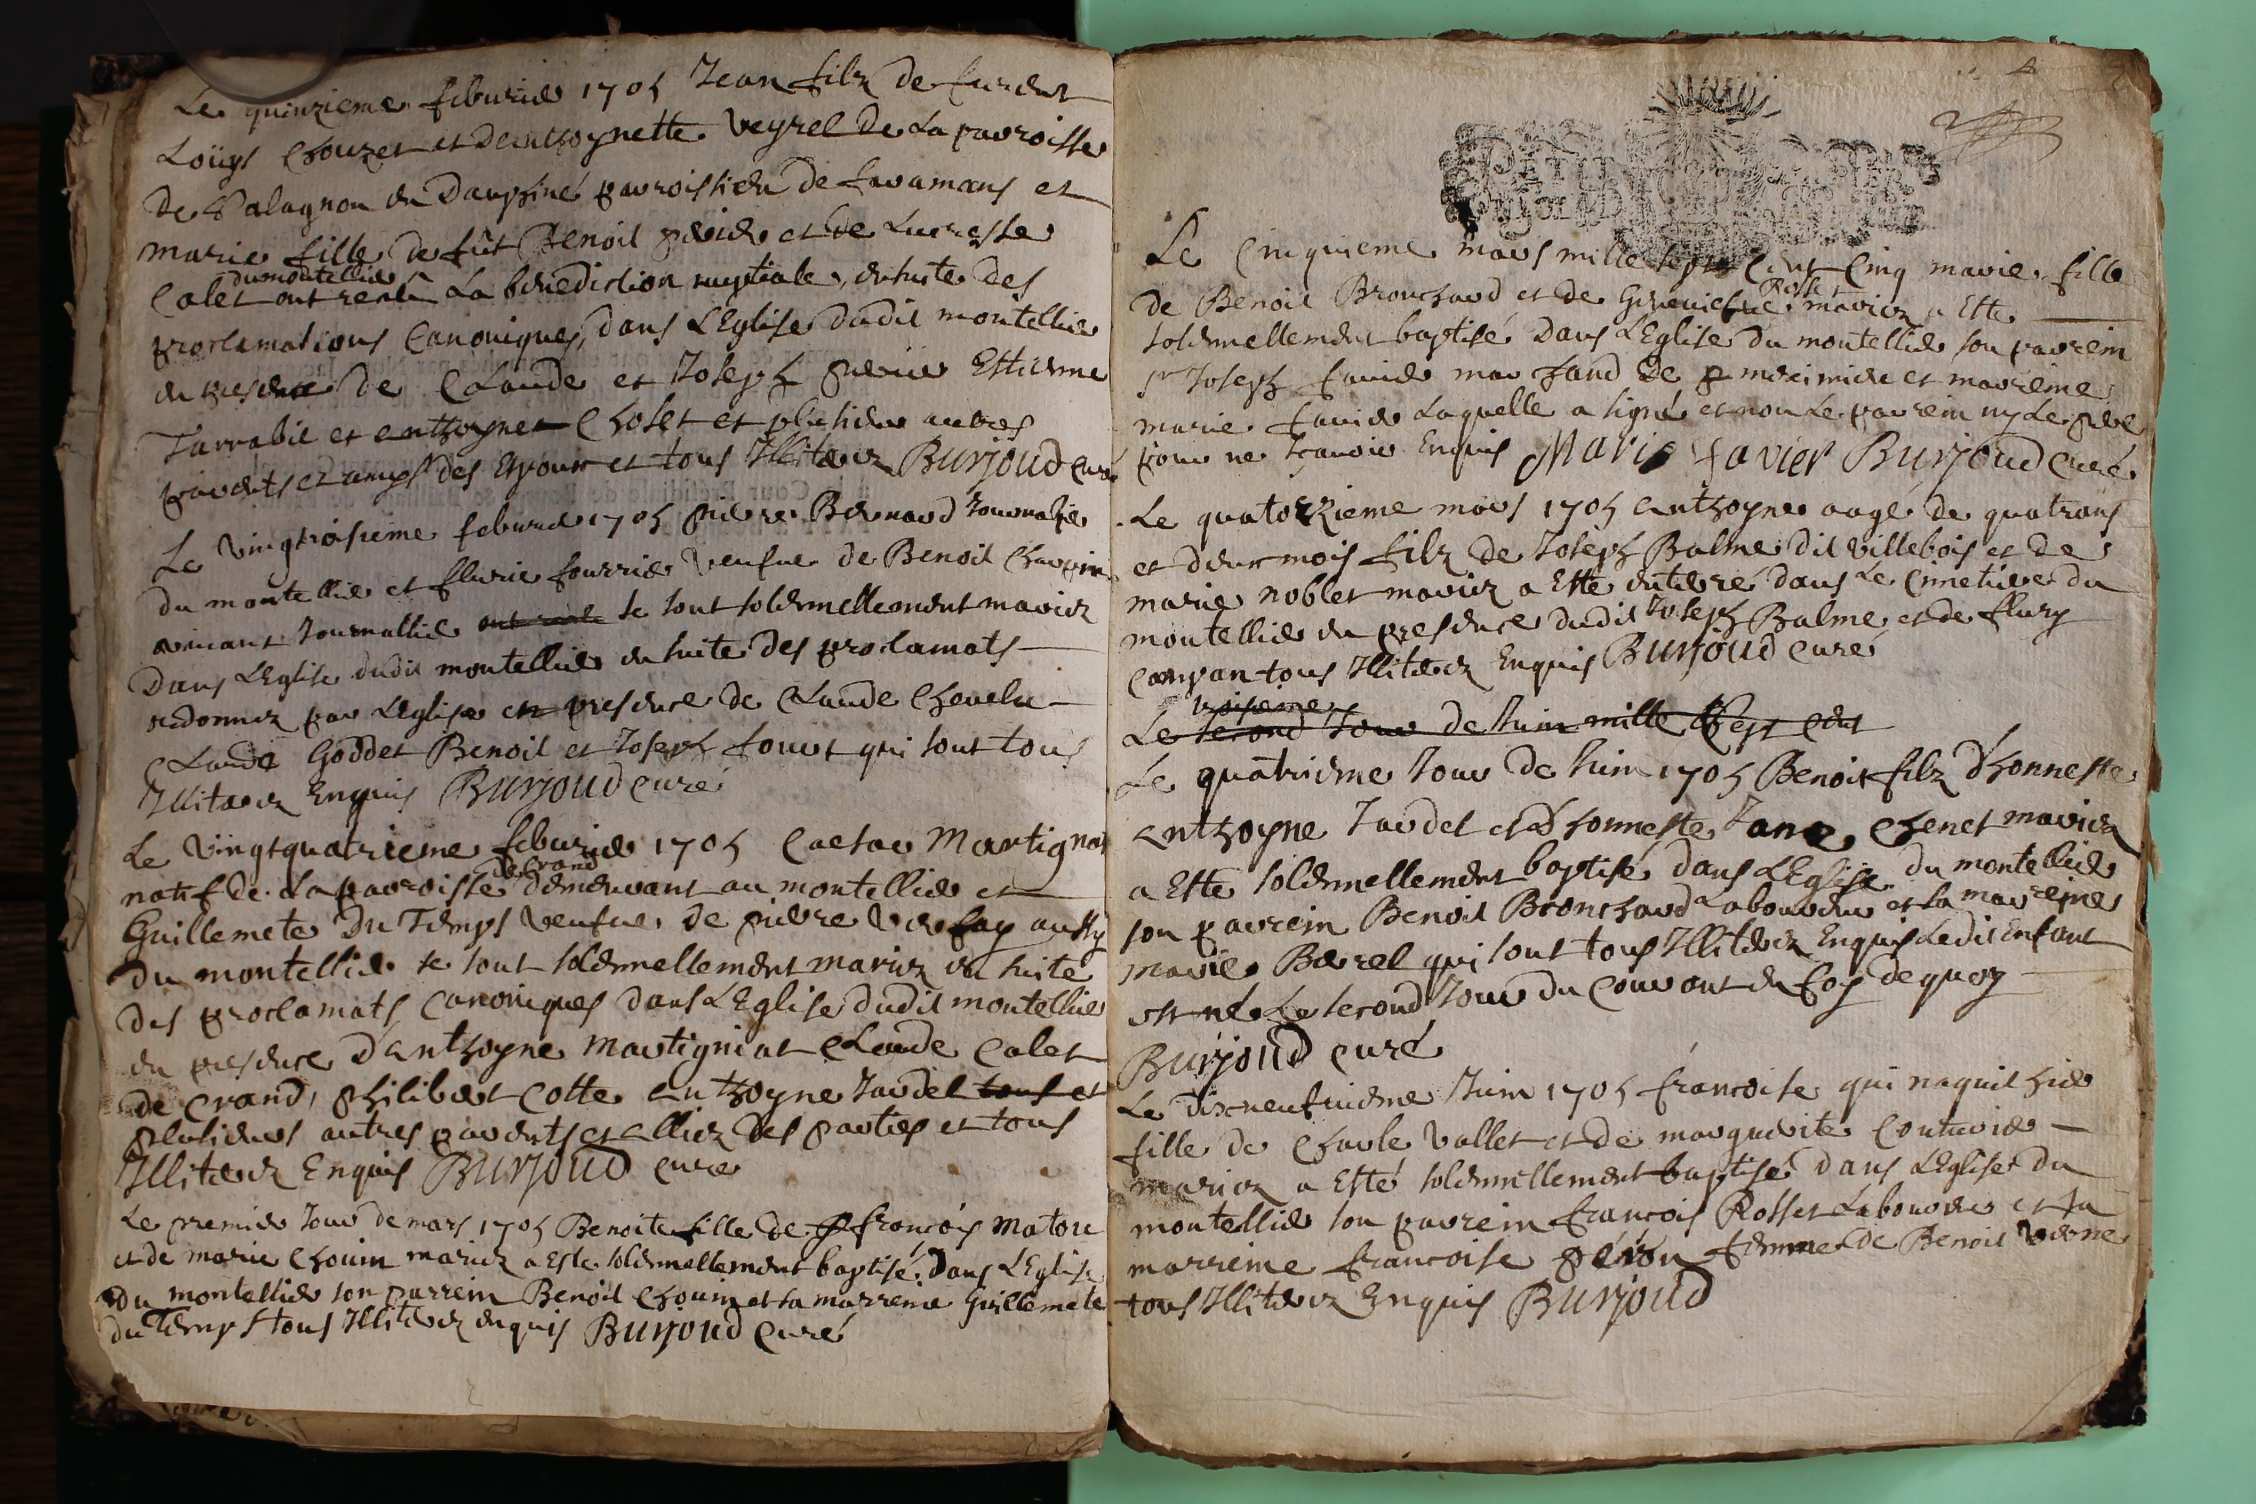 Le quinzieme feburier 1705 Jean filz de furent
Loüys Chouzet et danthoynette Veyrel de La parroisse
de Salagnon en Dauphiné parroissien de faramans et
marie fille de fût Benoit et de Lucresse
dumontellier
Calet ont receu La benediction nuptiale, ensuite des
proclamations Canoniques, dans LEglise dudit montellier
en presence de Claude et Joseph Estienne
Tarrabie et anthoyne Cholet et plusieurs autres
parents et amys des Espoux et tous Illiterez Burjoud curé
Le vingtroisieme feburier 1705 pierre Bernard Journalier
du montellier et fleurie fourrier veufue de Benoit Chappin
vivant Journallier ont receu se sont solemnellement mariez
Dans LEglise dudit montellier en suite des proclamats
ordonnez par LEglise en presence de Claude Chevelu
Claude Goddet Benoit et Joseph qui sont tous
Illiterez Enquis Burjoud curé
Le vingtquatrieme feburier 1705 Caesar Martignat
de Crans
natif de La parroisse demeurant au montellier et
Guillemete Du Temps veufue de pierre aussy
du montellier se sont solemnellement mariez en suite
des proclamats Canoniques dans LEglise dudit montellier
en presence D'anthoyne Martigniat Claude Calet
de Crand, philibert Cotte anthoyne Jardel tous et
plusieurs autres parents et alliez des parties et tous
Illiterez Enquis Burjoud curé
Le premier Jour de mars 1705 Benoite fille de françois Maton
et de marie Chouin mariez a Este solemnellement baptisé Dans LEglise
du montellier son parrein Benoit Chouin et sa marreine Guillemete
du Temps tous Illiterez enquis Burjoud curé
PETIT PAPIER
Le Cinquieme mars mille sept Cent Cinq marie fille
Rosset
de Benoit Bronchard et de Geneviefue mariez a Este
solemnellement baptisé Dans LEglise du montellier son parrein
sr Joseph favier marchand de et marreine
marie favier Laquelle a signé et non Le parrein ny Le pere
pour ne sçavoir Enquis Marie favier Burjoud curé
Le quatorzieme mars 1705 anthoyne aagé de quatrans
et deux mois filz de Joseph Balme dit villebois et de
marie noblet mariez a Este enterré dans Le Cimetiere du
montellier en presence dudit Joseph Balme et de fleury
Campan tous Illiterez Enquis Burjoud curé
troisieme
Le second Jour de Juin mille sept Cent
Le quatrieme Jour de Juin 1705 Benoit filz d'honneste
anthoyne Jardet et d'honneste Jane Chenet mariez
a Este solemnellement baptisé dans LEglise du montellier
son parrein Benoit Bronchard Laboureur et sa marreine
marie Borel qui sont tous Illiterez Enquis Ledit Enfant
est né Le second Jour du Courant en foy de quoy
Burjoud curé
Le dixneufuieme Juin 1705 françoise qui naquit hier
fille de Charle vallet et de marguerite Couturier
mariez a Esté solemnellement baptisé dans LEglise du
montellier son parrein françois Rosset Laboureur et sa
marreine françoise femme de Benoit Verne
tous Illiterez Enquis Burjoud